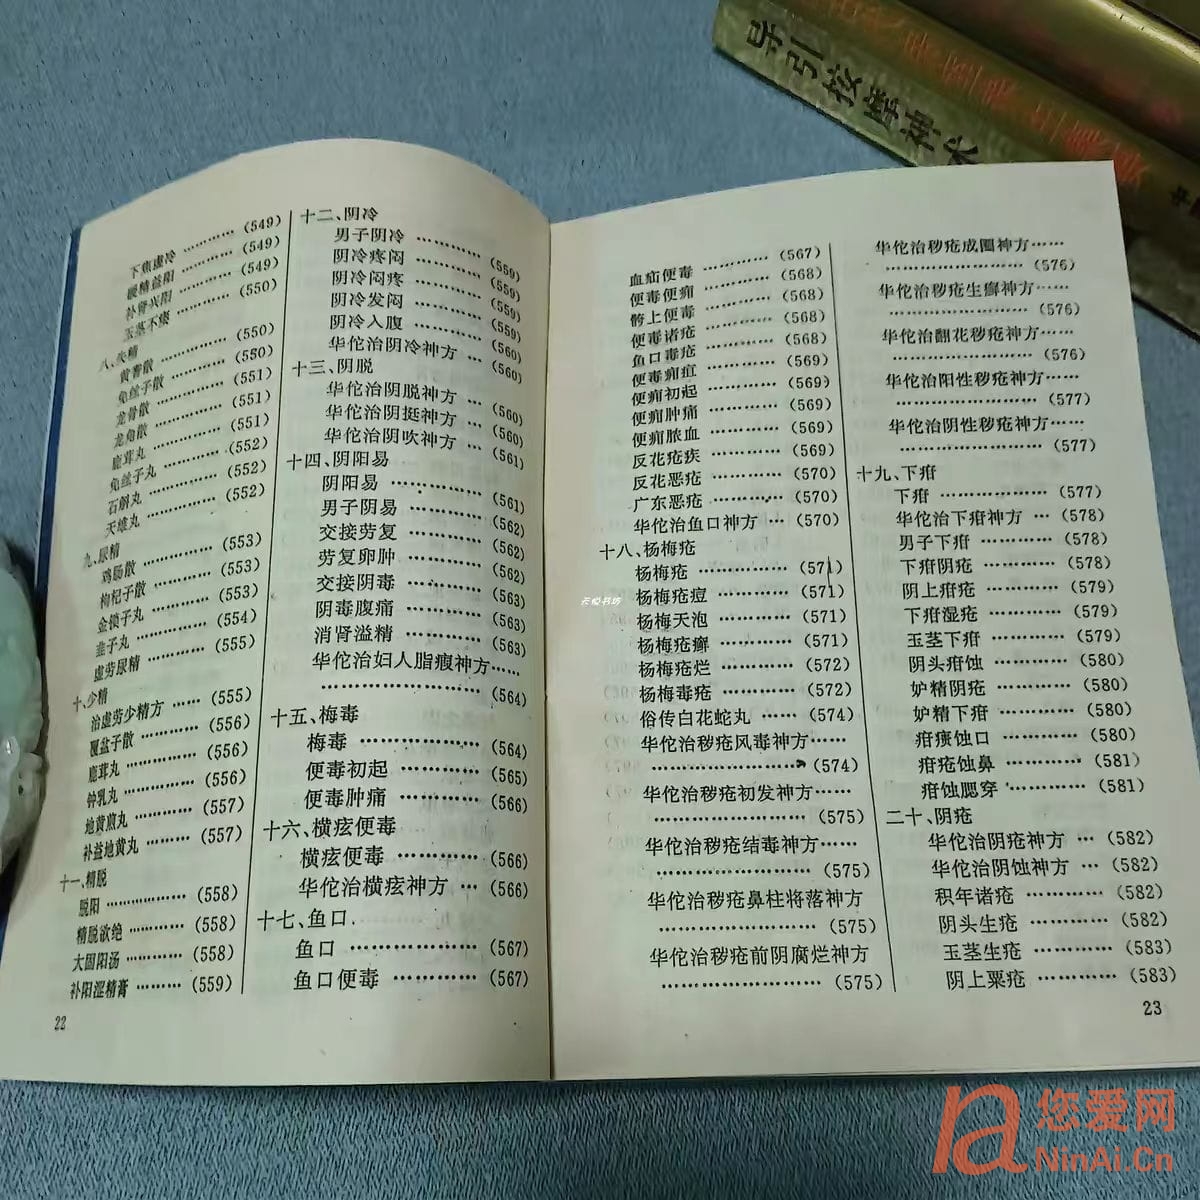 导引按摩神术
下焦虚冷 ………… (549)
暖精益阳 ………… (549)
补肾兴阳 ………… (549)
玉茎不痿 ………… (550)
八、失精
黄耆散 ………… (550)
兔丝子散 ………… (550)
龙骨散 ………… (551)
龙角散 ………… (551)
鹿茸丸 ………… (551)
兔丝子丸 ………… (552)
石斛丸 ………… (552)
天雄丸 ………… (552)
九、尿精
鸡肠散 ………… (553)
枸杞子散 ………… (553)
金锁子丸 ………… (553)
韭子丸 ………… (554)
虚劳尿精 ………… (555)
十、少精
治虚劳少精方 …… (555)
覆盆子散 ………… (556)
鹿茸丸 ………… (556)
钟乳丸 ………… (556)
地黄煎丸 ………… (557)
补益地黄丸 ……… (557)
十一、精脱
脱阳 ………… (558)
精脱欲绝 ………… (558)
大固阳汤 ………… (558)
补阳湿精膏 ……… (559)
22
十二、阴冷
男子阴冷 ………… (559)
阴冷疼闷 ………… (559)
阴冷闷疼 ………… (559)
阴冷发闷 ………… (559)
阴冷入腹 ………… (560)
华佗治阴冷神方 … (560)
十三、阴脱
华佗治阴脱神方 … (560)
华佗治阴挺神方 … (560)
华佗治阴吹神方 … (561)
十四、阴阳易
阴阳易 ………… (561)
男子阴易 ………… (562)
交接劳复 ………… (562)
劳复卵肿 ………… (562)
交接阴毒 ………… (563)
阴毒腹痛 ………… (563)
消肾溢精 ………… (563)
华佗治妇人脂瘕神方……
………………… (564)
十五、梅毒
梅毒 ………… (564)
便毒初起 ………… (565)
便毒肿痛 ………… (566)
十六、横痃便毒
横痃便毒 ………… (566)
华佗治横痃神方 … (566)
十七、鱼口
鱼口 ………… (567)
鱼口便毒 ………… (567)
血疝便毒 ………… (567)
便毒便痈 ………… (568)
骻上便毒 ………… (568)
便毒诸疮 ………… (568)
鱼口毒疮 ………… (568)
便毒痈疽 ………… (569)
便痈初起 ………… (569)
便痈肿痛 ………… (569)
便痈脓血 ………… (569)
反花疮疾 ………… (569)
反花恶疮 ………… (570)
广东恶疮 ………… (570)
华佗治鱼口神方 … (570)
十八、杨梅疮
杨梅疮 ………… (571)
杨梅疮痘 ………… (571)
杨梅天泡 ………… (571)
杨梅疮癣 ………… (571)
杨梅疮烂 ………… (572)
杨梅毒疮 ………… (572)
俗传白花蛇丸 …… (574)
华佗治秽疮风毒神方……
………………… (574)
华佗治秽疮初发神方……
………………… (575)
华佗治秽疮结毒神方……
………………… (575)
华佗治秽疮鼻柱将落神方
………………… (575)
华佗治秽疮前阴腐烂神方
………………… (575)
华佗治秽疮成圈神方……
………………… (576)
华佗治秽疮生癣神方……
………………… (576)
华佗治翻花秽疮神方……
………………… (576)
华佗治阳性秽疮神方……
………………… (577)
华佗治阴性秽疮神方……
………………… (577)
十九、下疳
下疳 ………… (577)
华佗治下疳神方 … (578)
男子下疳 ………… (578)
下疳阴疮 ………… (578)
阴上疳疮 ………… (579)
下疳湿疮 ………… (579)
玉茎下疳 ………… (579)
阴头疳蚀 ………… (580)
妒精阴疮 ………… (580)
妒精下疳 ………… (580)
疳瘘蚀口 ………… (580)
疳疮蚀鼻 ………… (581)
疳蚀腮穿 ………… (581)
二十、阴疮
华佗治阴疮神方 … (582)
华佗治阴蚀神方 … (582)
积年诸疮 ………… (582)
阴头生疮 ………… (582)
玉茎生疮 ………… (583)
阴上粟疮 ………… (583)
23
天悦书坊
您爱网
NinAi.Cn